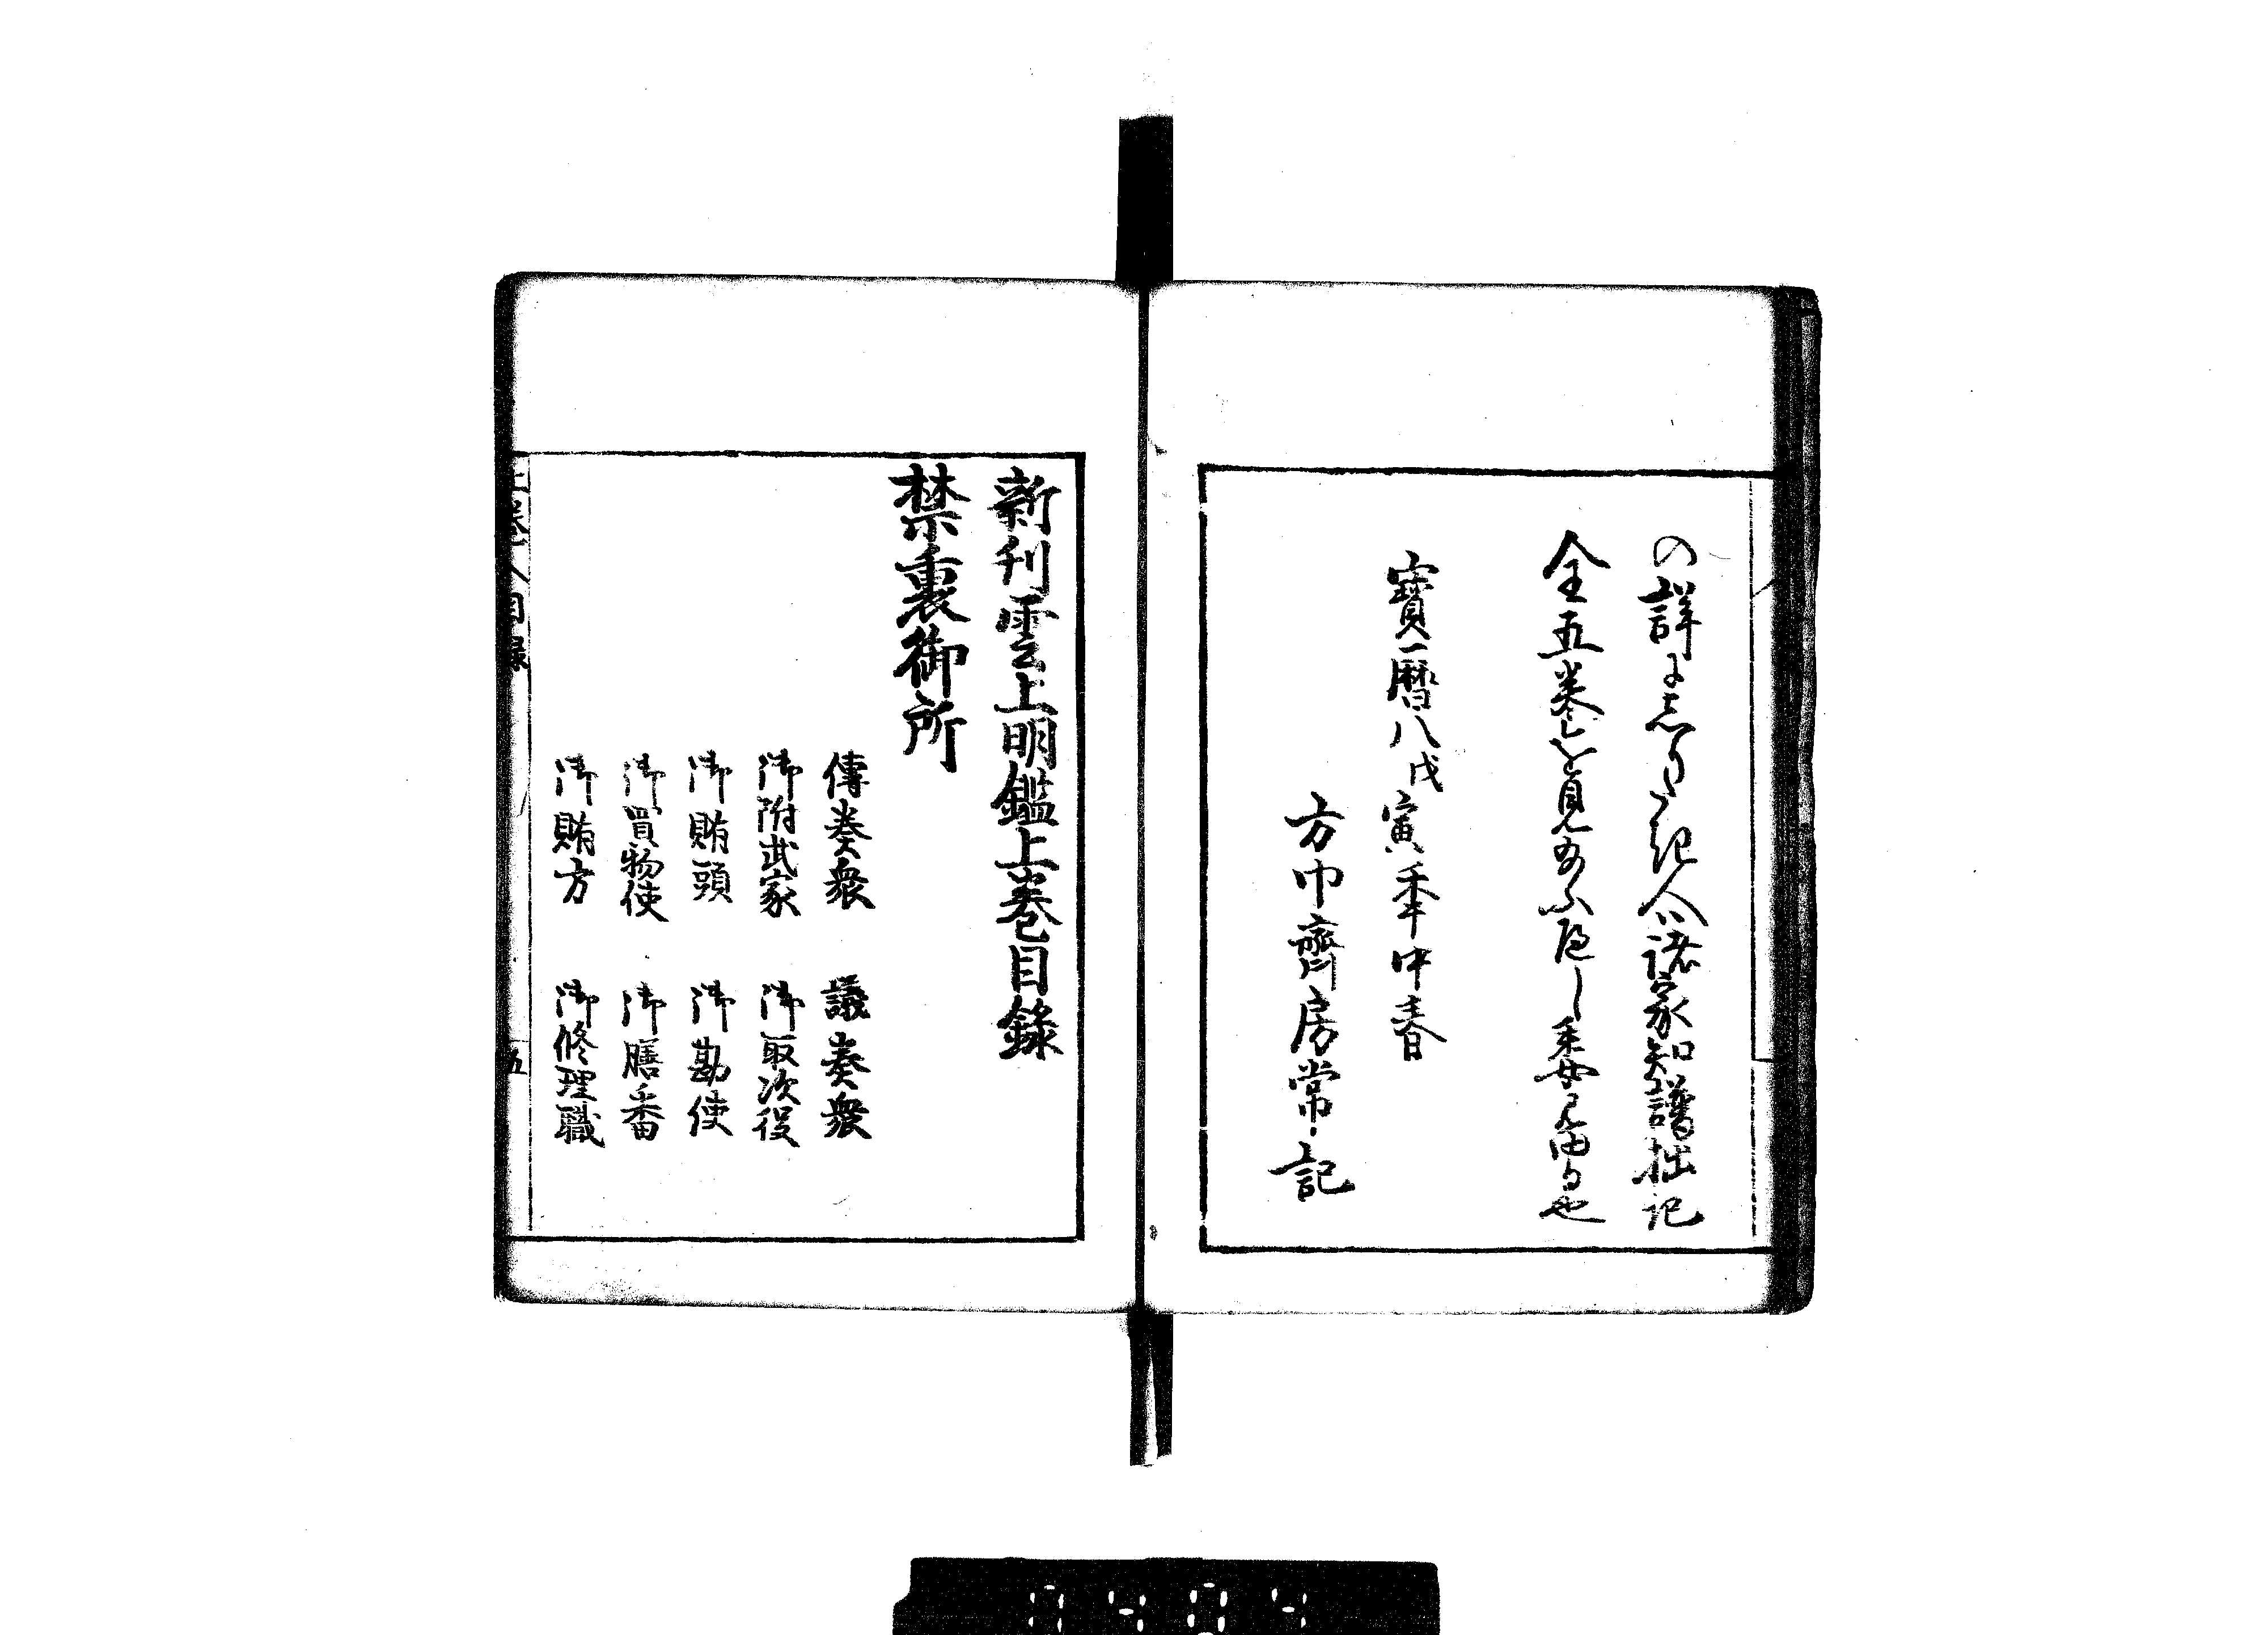 の詳に志りたき人ハ諸家知譜拙記
全五巻を見給ふべし
寶暦八戊寅年中春
方巾齋房常記
新刊雲上明鑑上巻目録
禁裏御所
傳奏衆 議奏衆
御附武家 御取次役
御賄頭 御勘使
御買物使 御膳番
御賄方 御修理職
上巻 目録 五